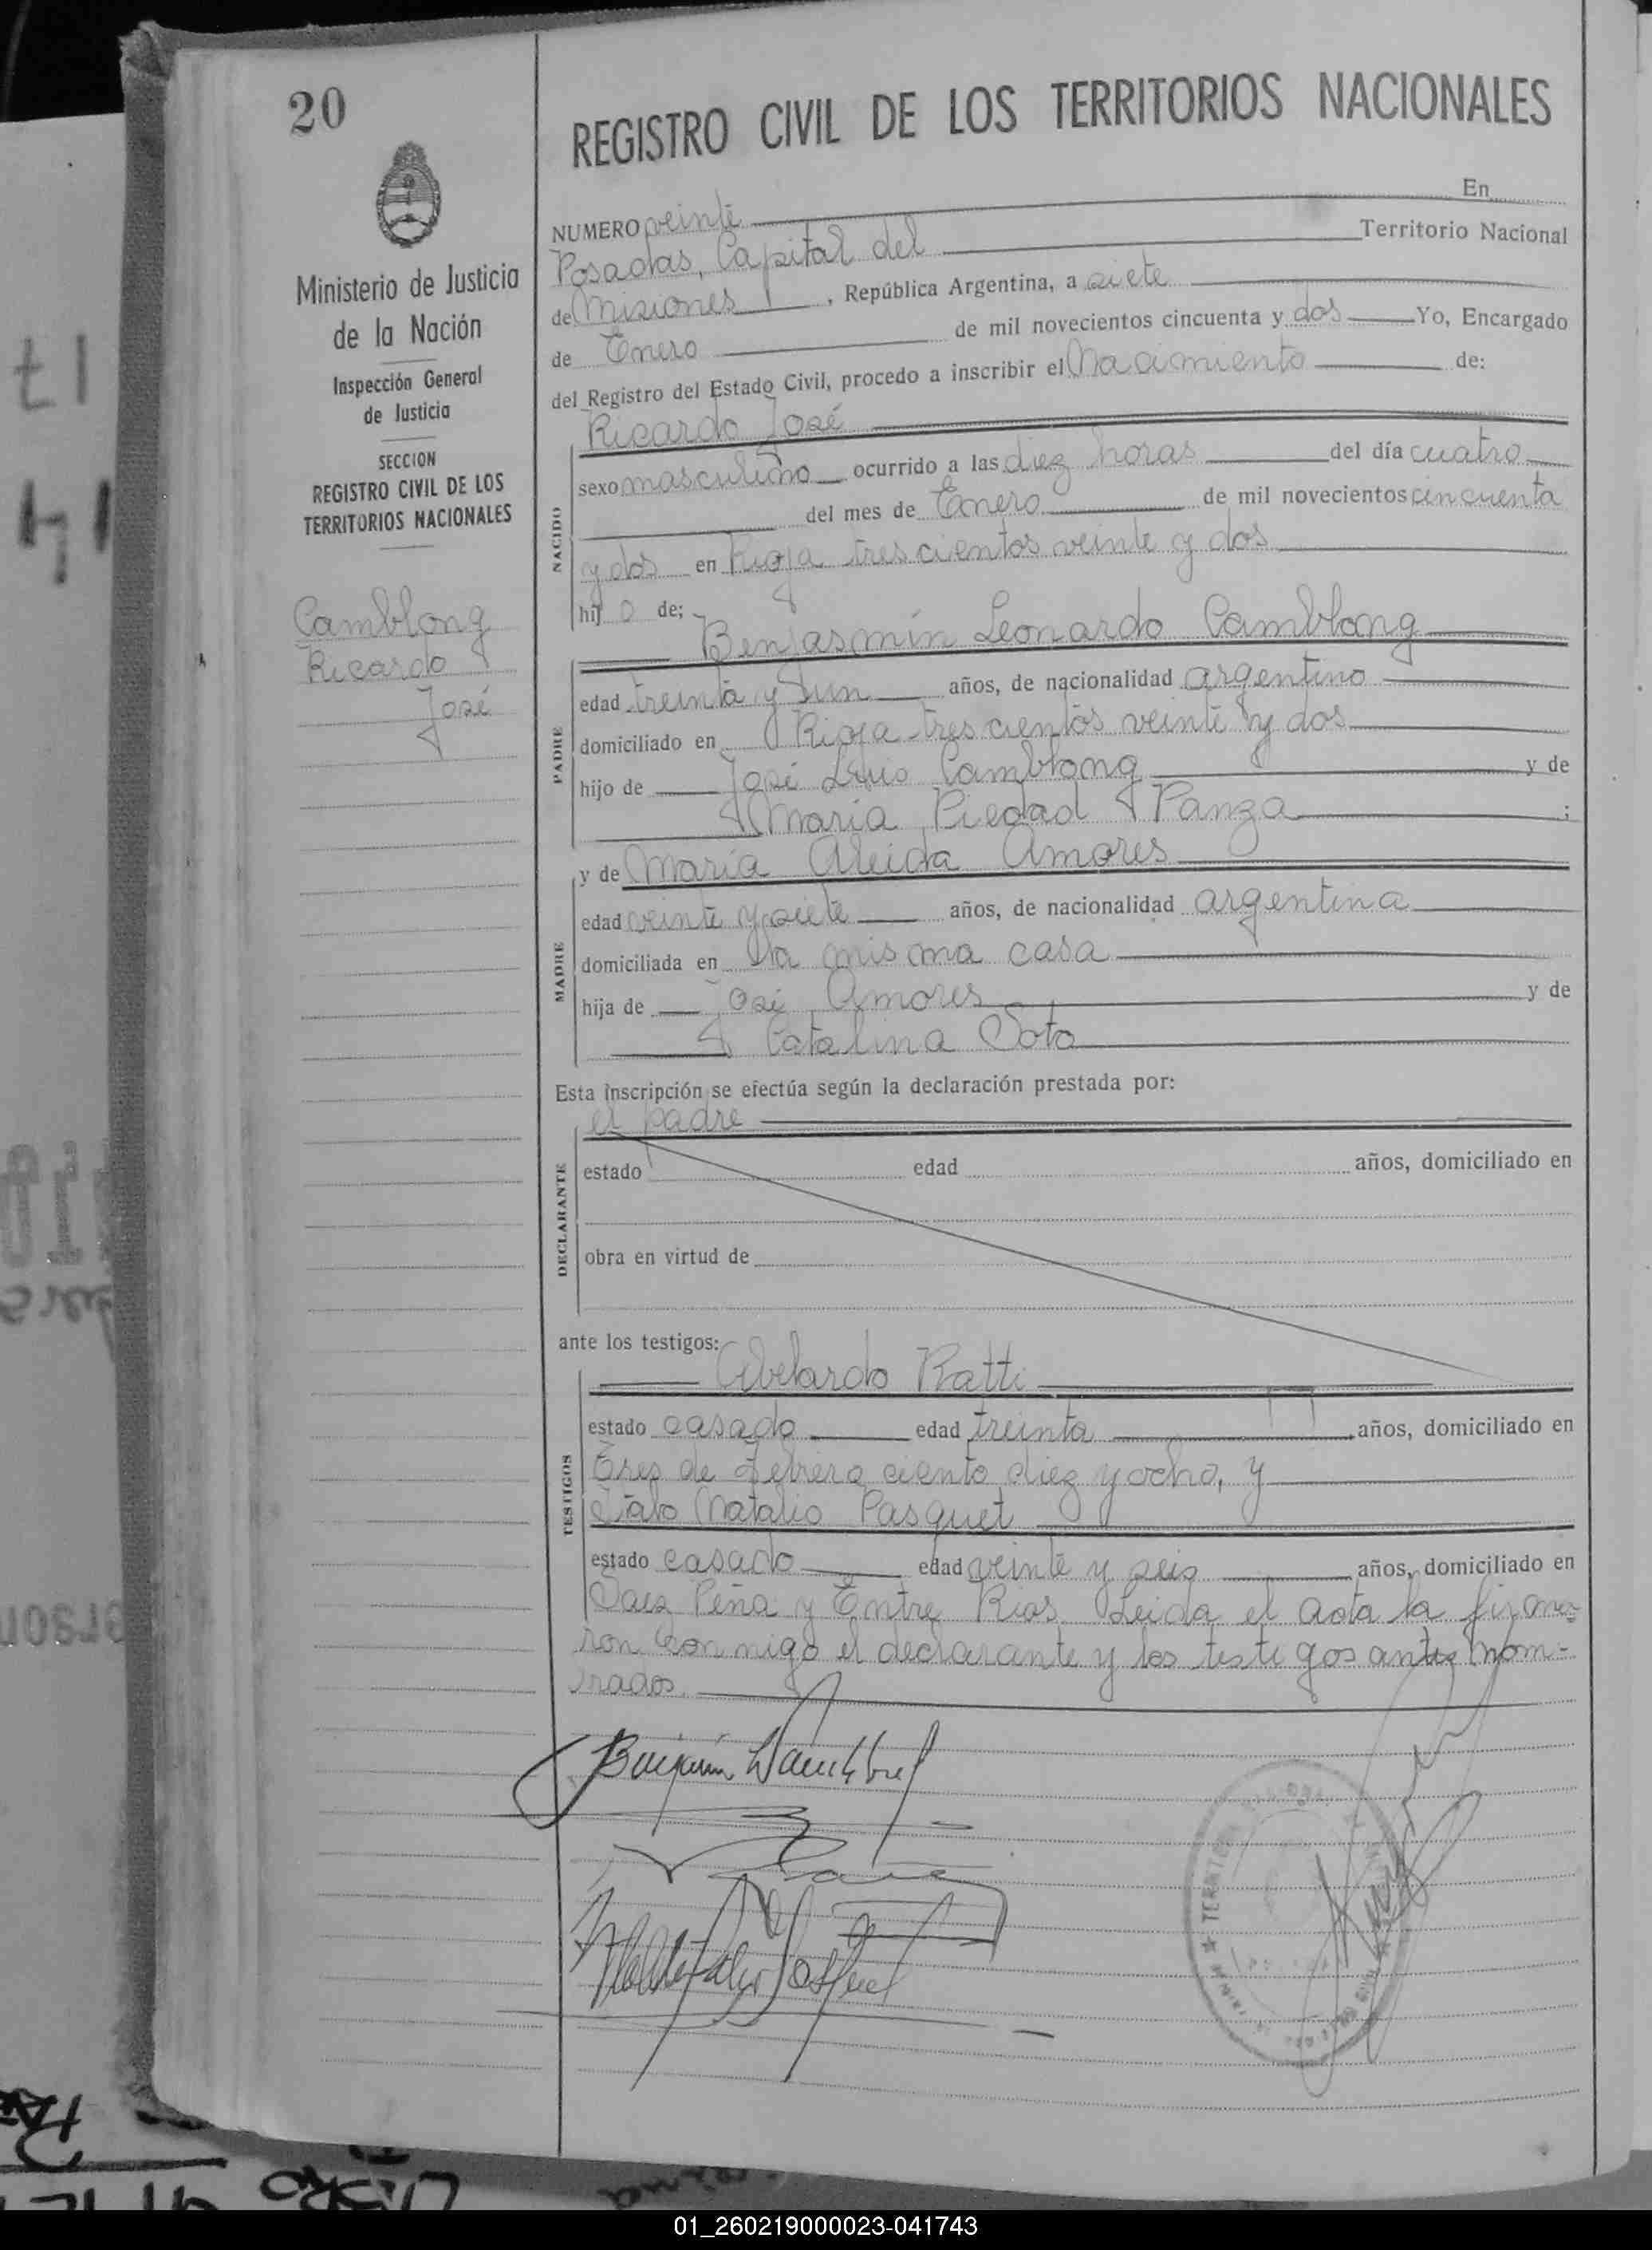 20
Ministerio de Justicia
de la Nación
Inspección General
de Justicia
SECCION
REGISTRO CIVIL DE LOS
TERRITORIOS NACIONALES
Camblong
Ricardo
José
REGISTRO CIVIL DE LOS TERRITORIOS NACIONALES
NUMERO veinte En
Posadas, Capital del Territorio Nacional
de Misiones, República Argentina, a siete
de Enero de mil novecientos cincuenta y dos Yo, Encargado
del Registro del Estado Civil, procedo a inscribir el Nacimiento de:
Ricardo José
NACIDO
sexo masculino ocurrido a las diez horas del día cuatro
del mes de Enero de mil novecientos cincuenta
y dos en Rioja trescientos veinte y dos
hijo de;
Benjasmín Leonardo Camblong
PADRE
edad treinta y un años, de nacionalidad argentino
domiciliado en Rioja trescientos veinte y dos
hijo de José Luis Camblong y de
Maria Piedad Panza ;
y de Maria Aleida Amores
MADRE
edad veinte y siete años, de nacionalidad argentina
domiciliada en la misma casa
hija de José Amores y de
Catalina Soto
Esta inscripción se efectúa según la declaración prestada por:
el padre
DECLARANTE
estado edad años, domiciliado en
obra en virtud de
ante los testigos:
Abelardo Ratti
TESTIGOS
estado casado edad treinta años, domiciliado en
Tres de Febrero ciento diez y ocho, y
Italo Natalio Pasquet
estado casado edad veinte y seis años, domiciliado en
Saez Peña y Entre Rios. Leida el acta la firma-
ron conmigo el declarante y los testigos antes nom-
brados.
01_260219000023-041743